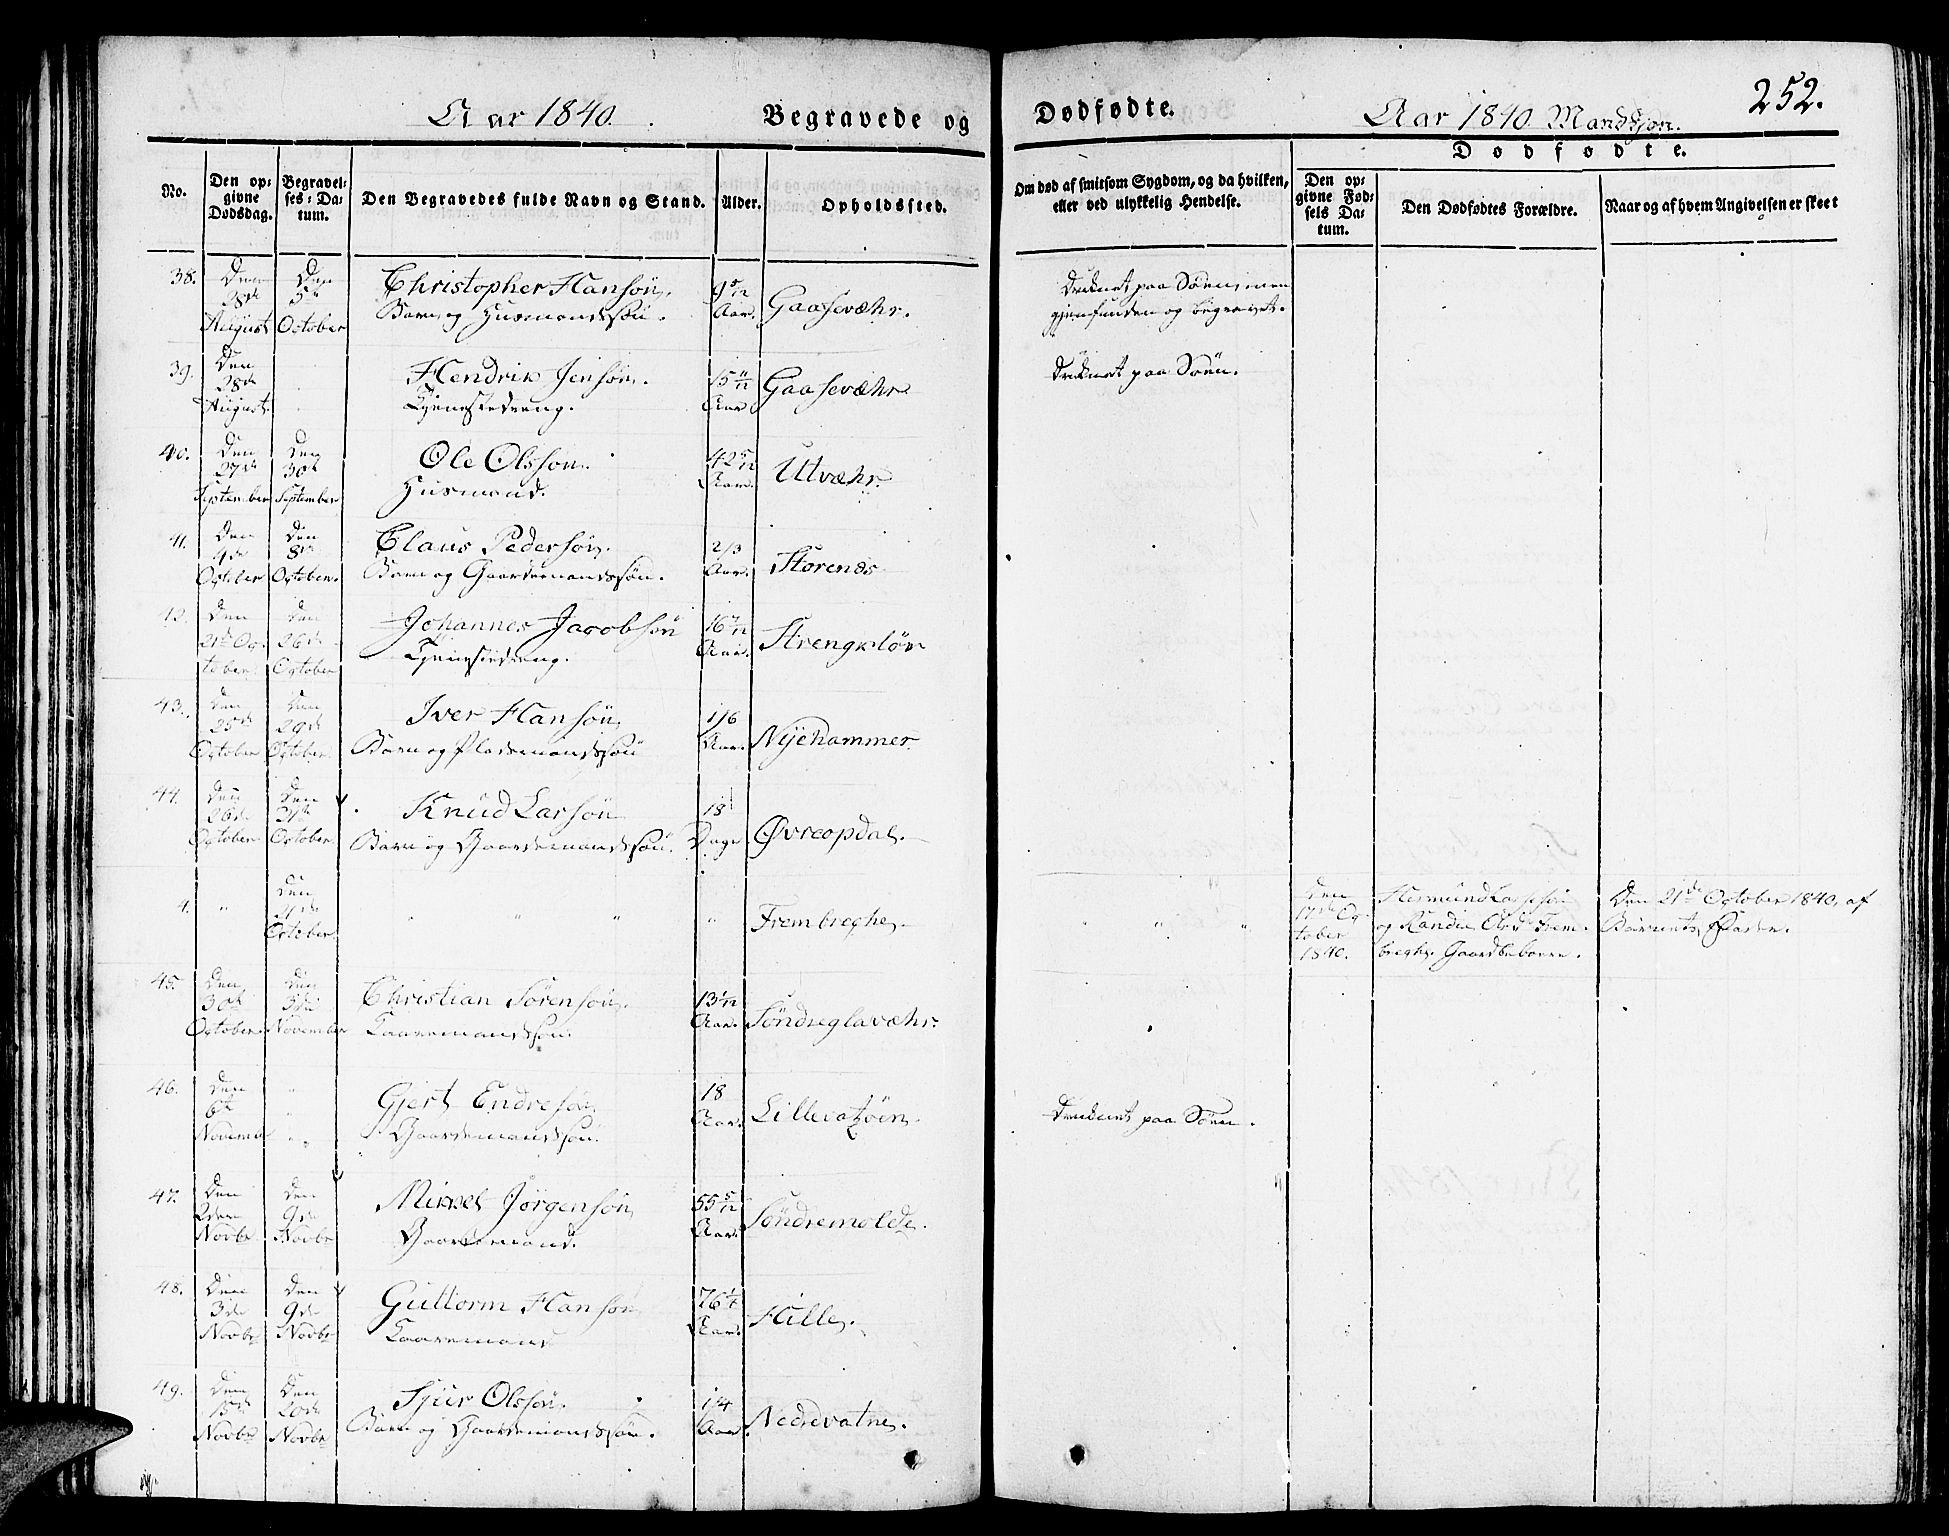 Aar 1840.
Begravede og
Dødfødte.
Aar 1840. Mandkjøn.
252.
No.
Den op-
givne
Dødsdag.
Begravel-
ses-Da-
tum.
Den Begravedes fulde Navn og Stand.
Alder.
Opholdssted.
Om død af smitsom Sygdom, og da hvilken,
eller ved ulykkelig Hendelse.
Dødfødte.
Den op-
givne Fød-
sels Da-
tum.
Den Dødfødtes Forældre.
Naar og af hvem Angivelsen er skeet
38.
Den
28de
August
Den
5te
October
Christopher Hansøn.
Barn og Husmandssøn.
9 5/12
Aar.
Gaasevæhr.
Druknet paa Søen, men
gjenfunden og begravet.
39.
Den
28de
August.
Hendrik Jensøn.
Tjenestedreng.
15 11/12
Aar
Gaasevæhr
Druknet paa Søen.
40.
Den
27de
September
Den
30te
September
Ole Olssøn.
Husmand.
42 5/12
Aar.
Utvæhr.
41.
Den
4de
October
Den
8de
October.
Claus Pedersøn.
Barn og Gaardemandssøn.
2/3
Aar.
Storenes
42.
Den
21de Oc-
tober.
Den
26de
October
Johannes Jacobsøn
Tjenestedreng.
16 7/12
Aar.
Strengkløv
43.
Den
25de
October
Den
29de
October.
Iver Hansøn
Barn og Pladsmandssøn
1/6
Aar.
Nyehammer.
44.
Den
26de
October
Den
31te
October.
Knud Larsøn
Barn og Gaardemandssøn.
18
Dage
Øvreopdal.
4.
"
Den
21de
October.
" " "
"
Frembreghe.
" " "
Den
17de Oc-
tober
1840.
og Randie Frem-
breghe. Gaardbeboere.
Den 21de October 1840, af
Barnets Fader.
45.
Den
30te
October.
Den
3die
November
Christian Sørensøn.
Kaaremandssøn.
13 1/12
Aar.
Søndreglavæhr.
46.
Den
6te
November
"
"
Gjert Endresøn
Gaardemandssøn.
18
Aar.
Lillevatzöen.
Druknet paa Søen.
47.
Den
2den
Novbr
Den
9de
Novbr
Mikkel Jørgensøn
Gaardemand.
55 5/12
Aar.
Søndremolde.
48.
Den
3de
Novbr
Den
9de
Novbr
Guttorm Hansøn
Kaaremand
76 1/2
Aar.
Hille.
49.
Den
15de
Novbr
Den
20de
Novbr
Sjur Olssøn.
Barn og Gaardemandssøn.
1/4
Aar.
Nedrevatne.